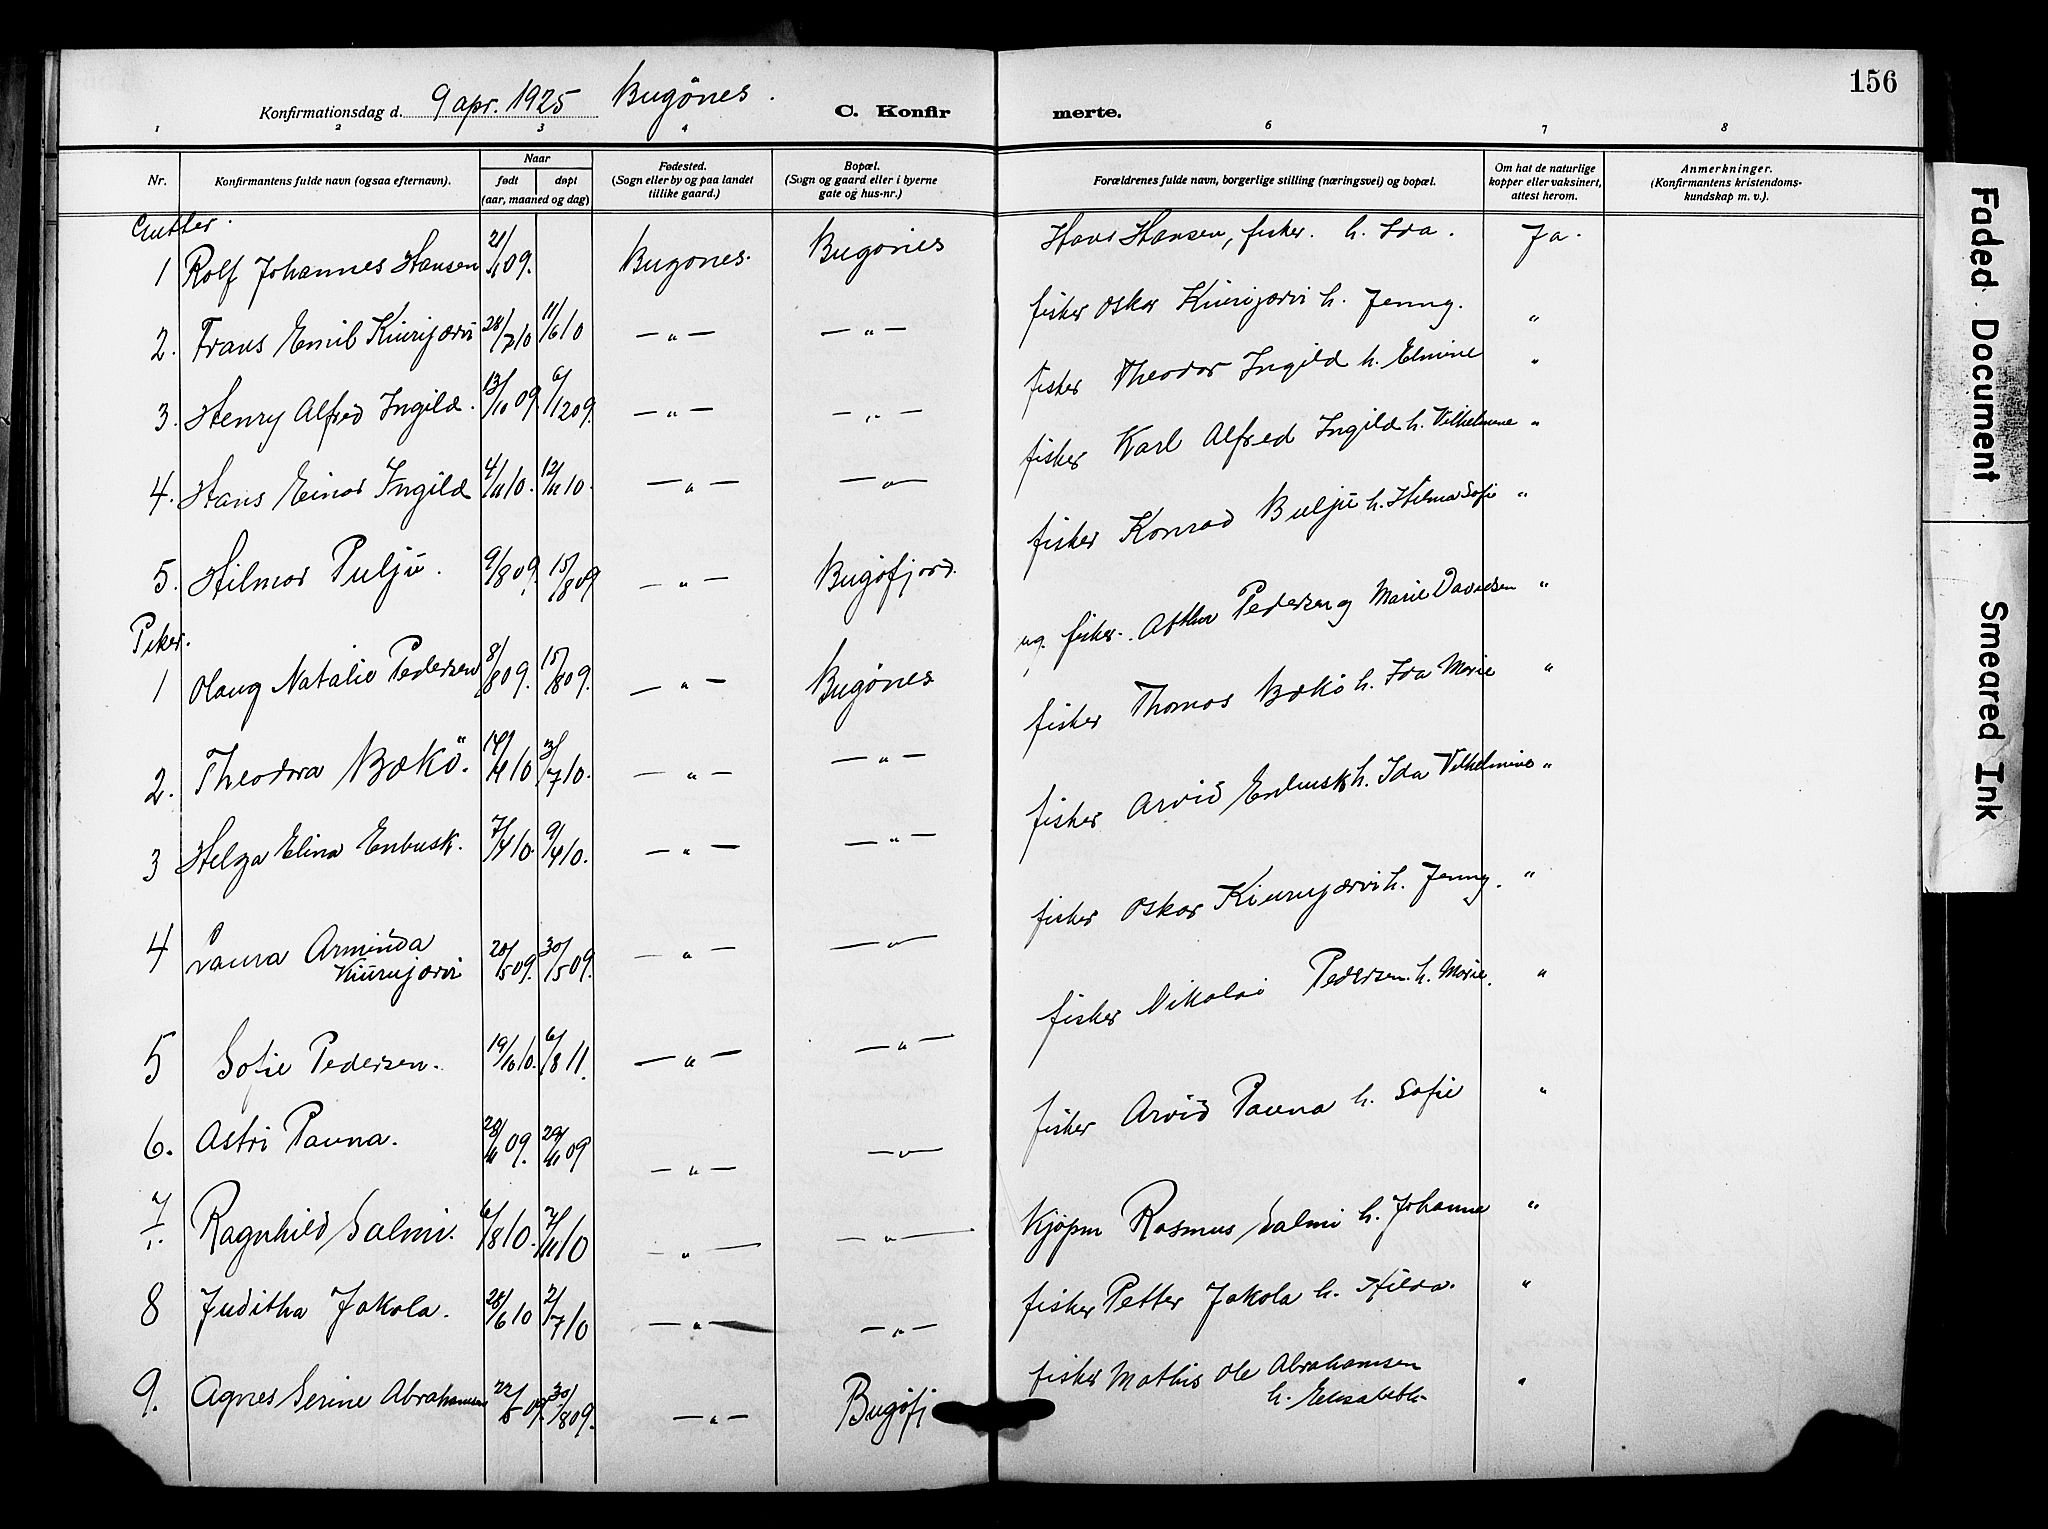 156
Konfirmationsdag d. 9 apr. 1925 Bugönes.
C. Konfirmerte.
1 2 3 4 6 7 8
Nr. Konfirmantens fulde navn (ogsaa efternavn). Naar født døpt (aar, maaned og dag) Fødested. (Sogn eller by og paa landet tillike gaard.) Bopæl. (Sogn og gaard eller i byerne gate og hus-nr.) Forældrenes fulde navn, borgerlige stilling (næringsvei) og bopæl. Om hat de naturlige kopper eller vaksinert, attest herom. Anmerkninger. (Konfirmantens kristendomskundskap m. v.).
Gutter.
1 Rolf Johannes Hansen 09. Bugönes. Bugönes Hans Hansen, fisker. h. Ida. Ja.
2. Frans Emil Kiurijærvi 28/7 10 11/6 10 —"— —"— fisker Oskar Kiurijærvi h. Jenny. "
3. Henry Alfred Ingild. 13/10 09 6/12 09. —"— —"— fisker Theodor Ingild h. Elmine "
4. Hans Einar Ingild 4/11 10. 12/11 10. —"— —"— fisker Karl Alfred Ingild h. Vilhelmine "
5. Hilmar Puljü. 9/8 09. 15/8 09 —"— Bugöfjord. fisker Konrad Buljü h. Hilma Sofie "
Piker.
1 Olaug Natalie Pedersen 8/8 09. 15/8 09. —"— Bugønes ug. fisker. Arthur Pedersen og Marie Davidsen "
2. Theodora Bækö. 14/4 10 3/7 10. —"— —"— fisker Thomas Bækö h. Ida Marie "
3 Helga Elina Enbusk. 7/4 10. 9/4 10. —"— —"— fisker Arvid Enbusk h. Ida Vilhelmine "
4 Laura Arminda Kiurujærvi 20/5 09. 30/5 09. —"— —"— fisker Oskar Kiurujærvi h. Jenny. "
5 Sofie Pedersen. 19/10 10. 6/8 11. —"— —"— fisker Nikolai Pedersen h. Marie. "
6. Astri Pauna. 28/11 09. 29/11 09 —"— —"— fisker Arvid Pauna h. Sofie "
7 Ragnhild Salmi. 6/8 10. 7/11 10 —"— —"— Kjöpm Rasmus Salmi h. Johanne "
8 Juditha Jakola. 28/6 10 2/7 10 —"— —"— fisker Petter Jakola h. Hilda. "
9. Agnes Serine Abrahamsen 22/5 09. 30/8 09. —"— Bugöfj fisker Mathis Ole Abrahamsen
h. Elisabeth "
Faded Document
Smeared Ink